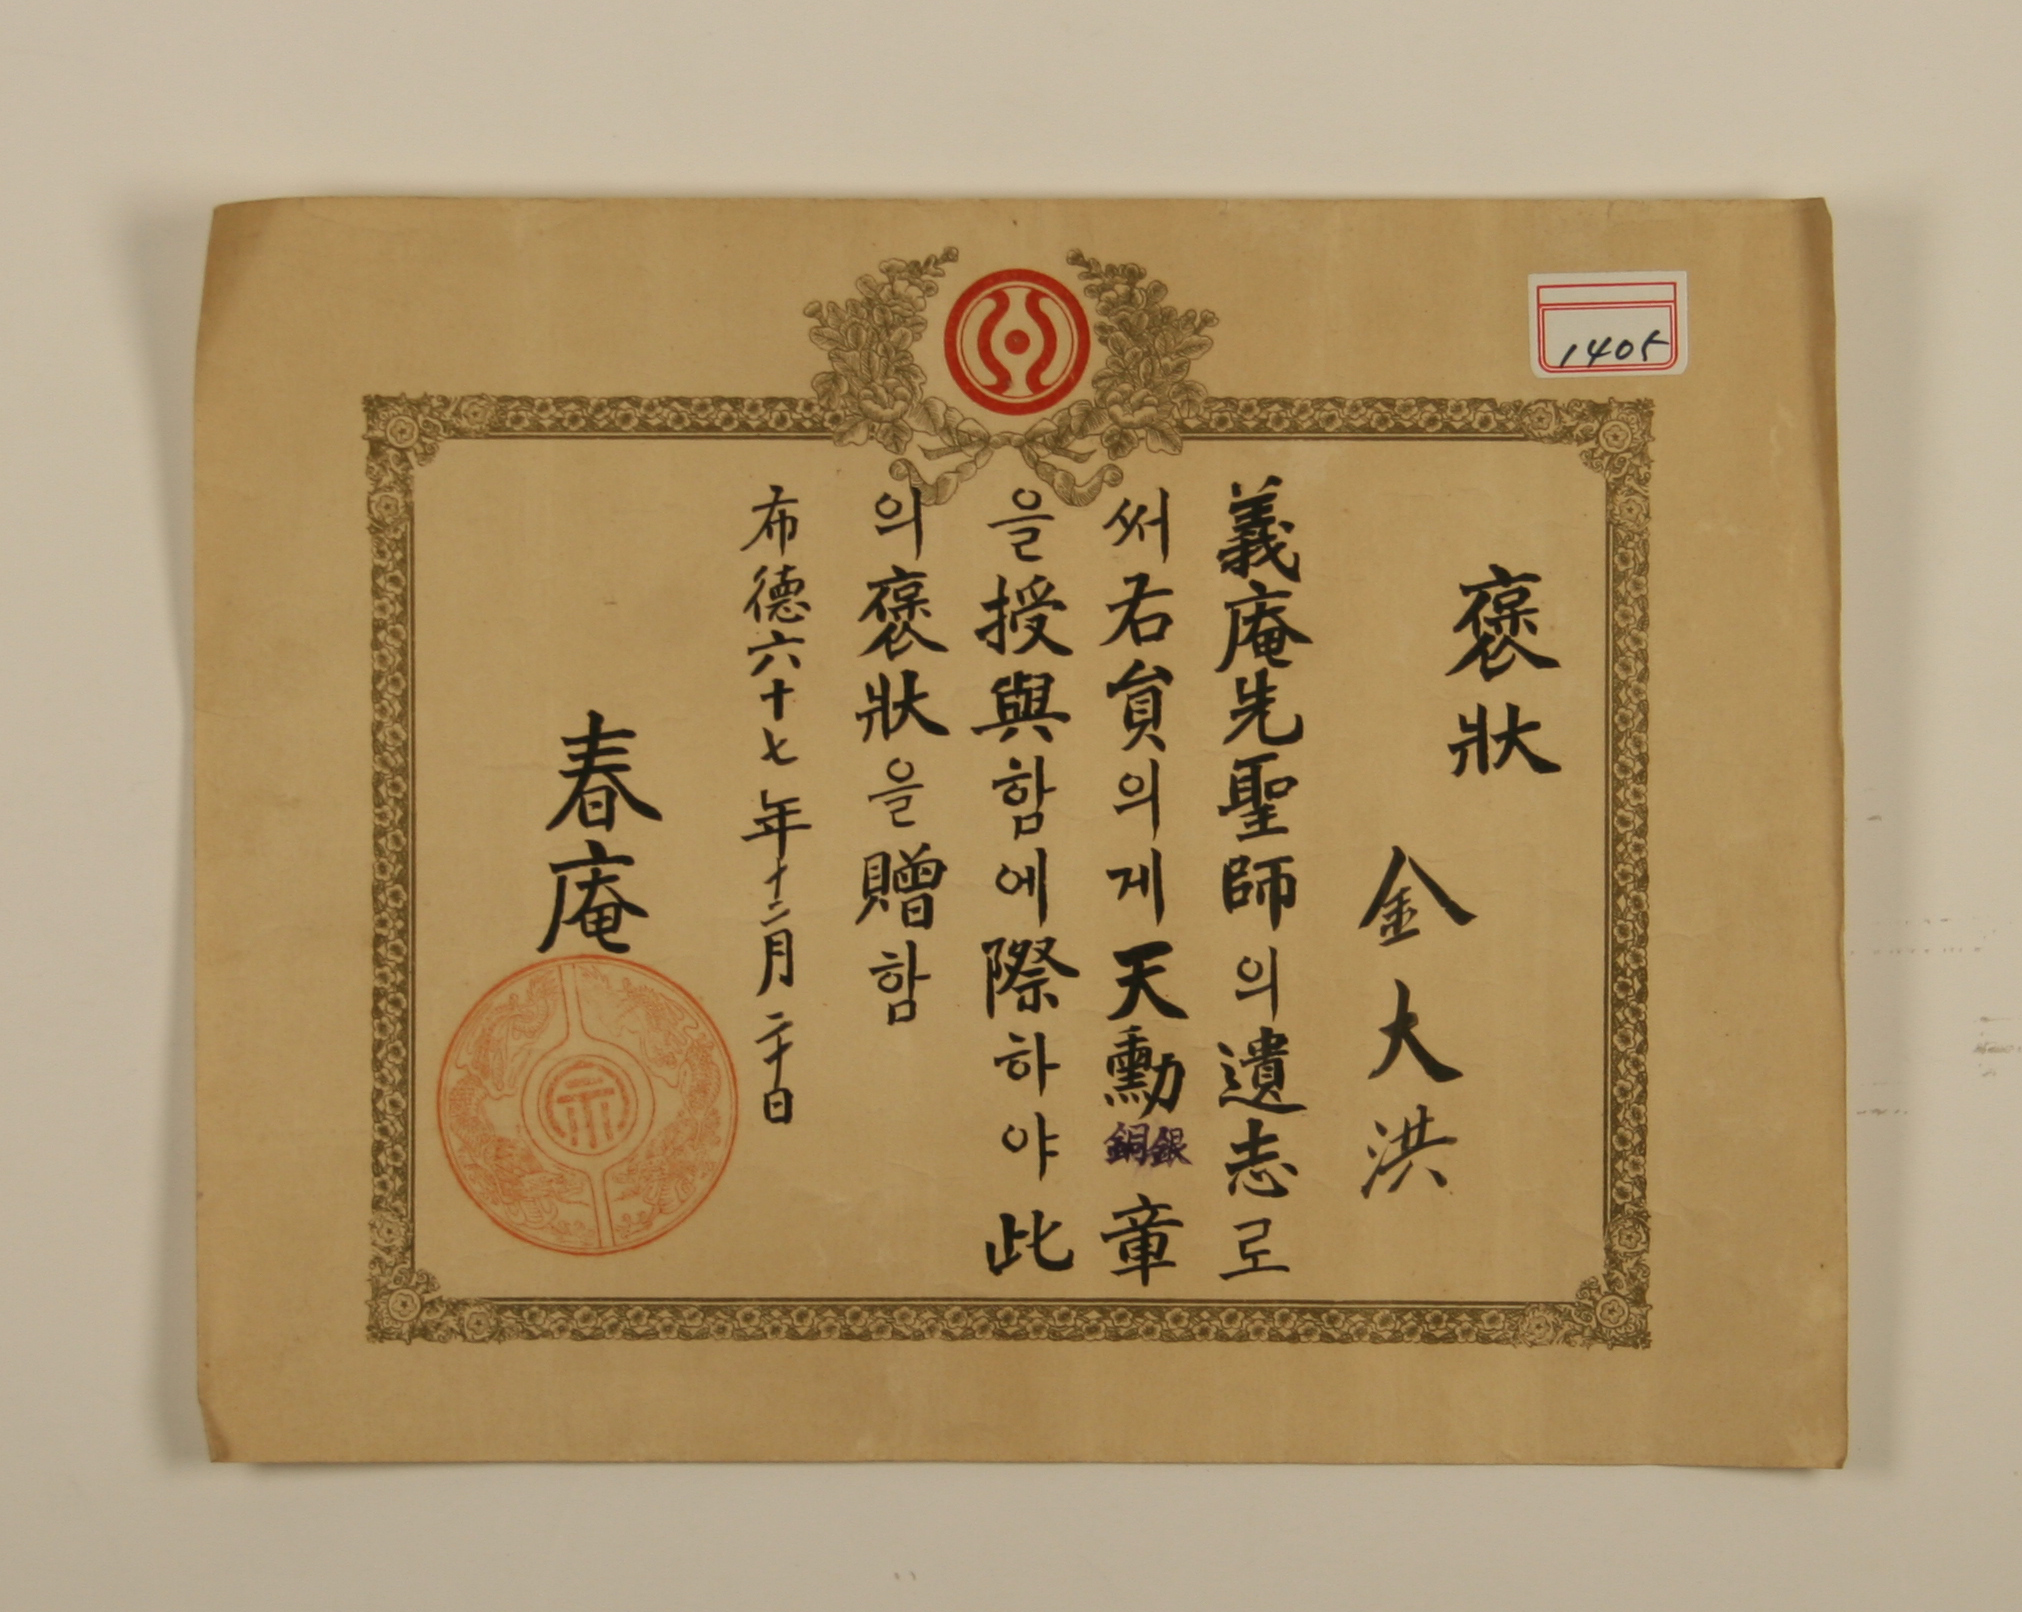 褒狀
金大洪
義庵先聖師의遺志로
써右員의게天勳銀銅章
을授與함에際하야此
의褒狀을贈함
布德六十七年十二月二十日
春庵
1405